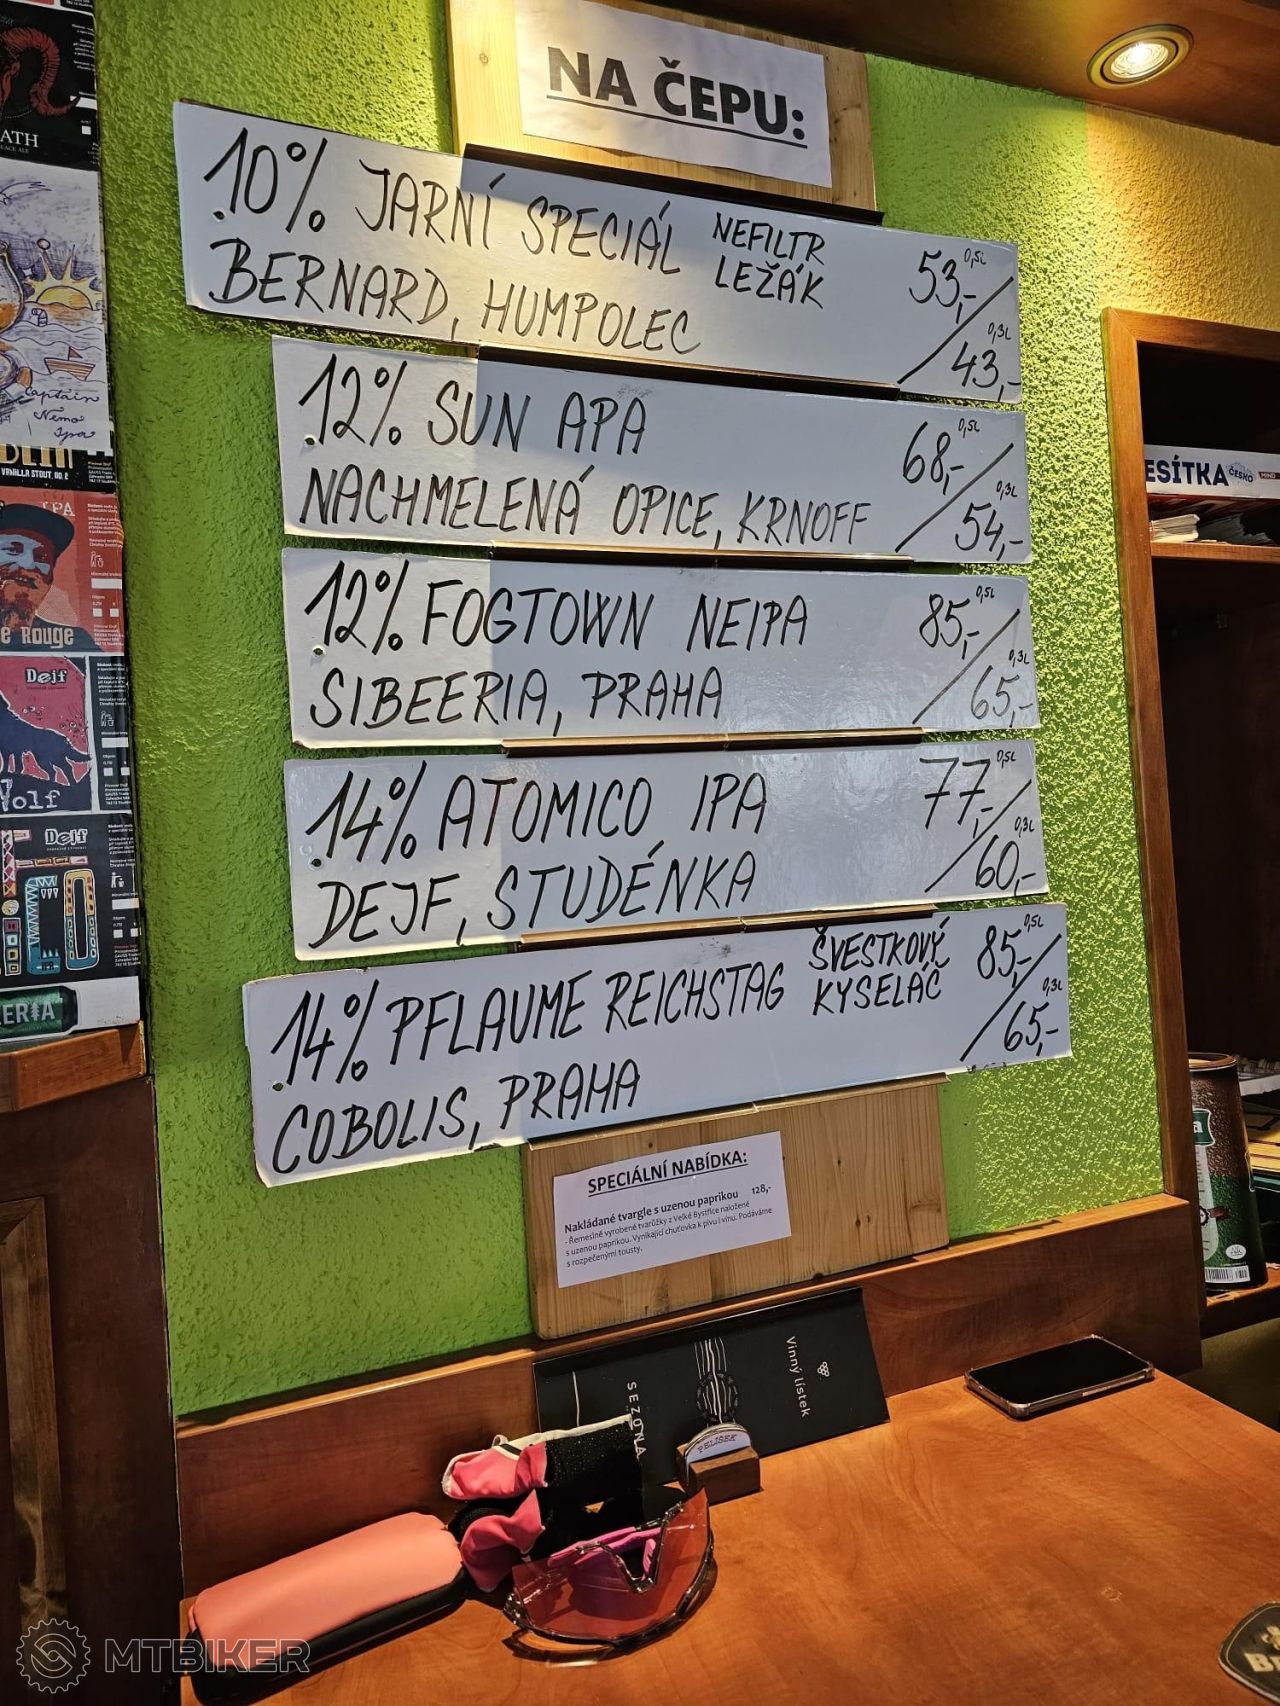 NA ČEPU:
10% JARNÍ SPECIÁL NEFILTR LEŽÁK 53,- 0,5L
BERNARD, HUMPOLEC 43,- 0,3L
12% SUN APA 68,- 0,5L
NACHMELENÁ OPICE, KRNOFF 54,- 0,3L
12% FOGTOWN NEIPA 85,- 0,5L
SIBEERIA, PRAHA 65,- 0,3L
14% ATOMICO IPA 77,- 0,5L
DEJF, STUDÉNKA 60,- 0,3L
14% PFLAUME REICHSTAG ŠVESTKOVÝ KYSELÁČ 85,- 0,5L
COBOLIS, PRAHA 65,- 0,3L
SPECIÁLNÍ NABÍDKA:
Nakládané tvargle s uzenou paprikou 128,-
- Řemeslně vyrobené tvarůžky z Velké Bystřice naložené
s uzenou paprikou. Vynikající chuťovka k pivu i vínu. Podáváme
s rozpečenými tousty.
Vinný lístek
SEZÓNA
PELÍŠEK
ATH
Captain
Nemo
Ipa
VANILLA STOUT, NO. 2
IPA
e Rouge
Dejf
Wolf
Dejf
ERIA
ESÍTKA
ČESKO
MIND
MTBIKER